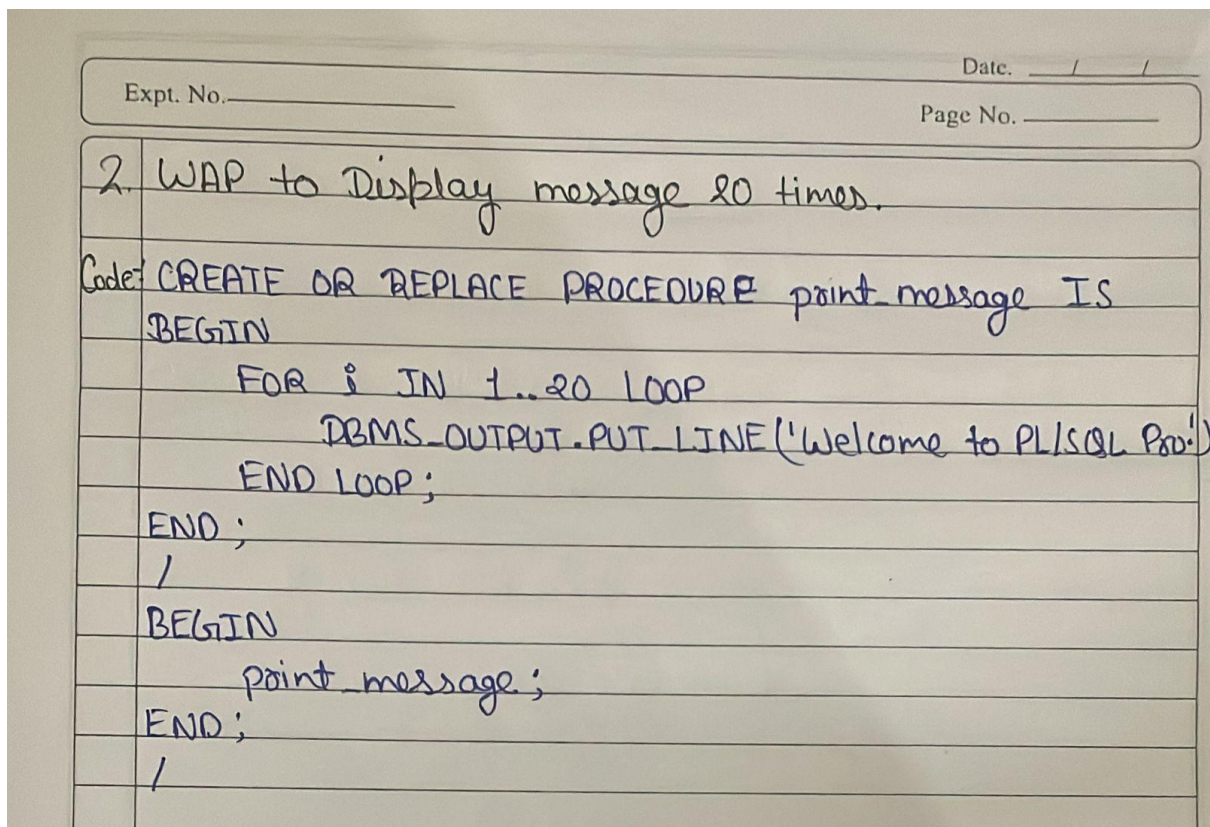 Date. / /
Expt. No.
Page No.
2. WAP to Display message 20 times.
Code:- CREATE OR REPLACE PROCEDURE print_message IS
BEGIN
FOR i IN 1..20 LOOP
DBMS_OUTPUT.PUT_LINE('Welcome to PL/SQL Pro.')
END LOOP;
END;
/
BEGIN
print_message;
END;
/